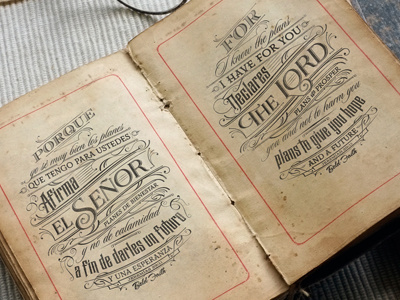 PORQUE
yo sé muy bien los planes
QUE TENGO PARA USTEDES
Afirma
EL SEÑOR
PLANES DE BIENESTAR
y no de calamidad
a fin de darles un futuro
Y UNA ESPERANZA
FOR
I know the plans
I HAVE FOR YOU
Declares
THE LORD
PLANS TO PROSPER
you and not to harm you
plans to give you hope
AND A FUTURE